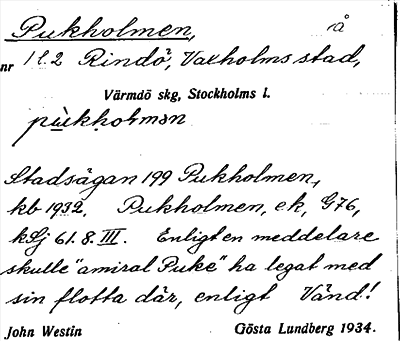 Pukholmen, å
nr 1 l. 2 Rindö, Vaxholms stad,
Värmdö skg, Stockholms l.
pùkhọlmən
Stadsägan 199 Pukholmen,
kb 1932. Pukholmen, ek, G76,
kSj 61.8.III. Enligt en meddelare
skulle "amiral Puke" ha legat med
sin flotta där, enligt Vänd!
John Westin Gösta Lundberg 1934.